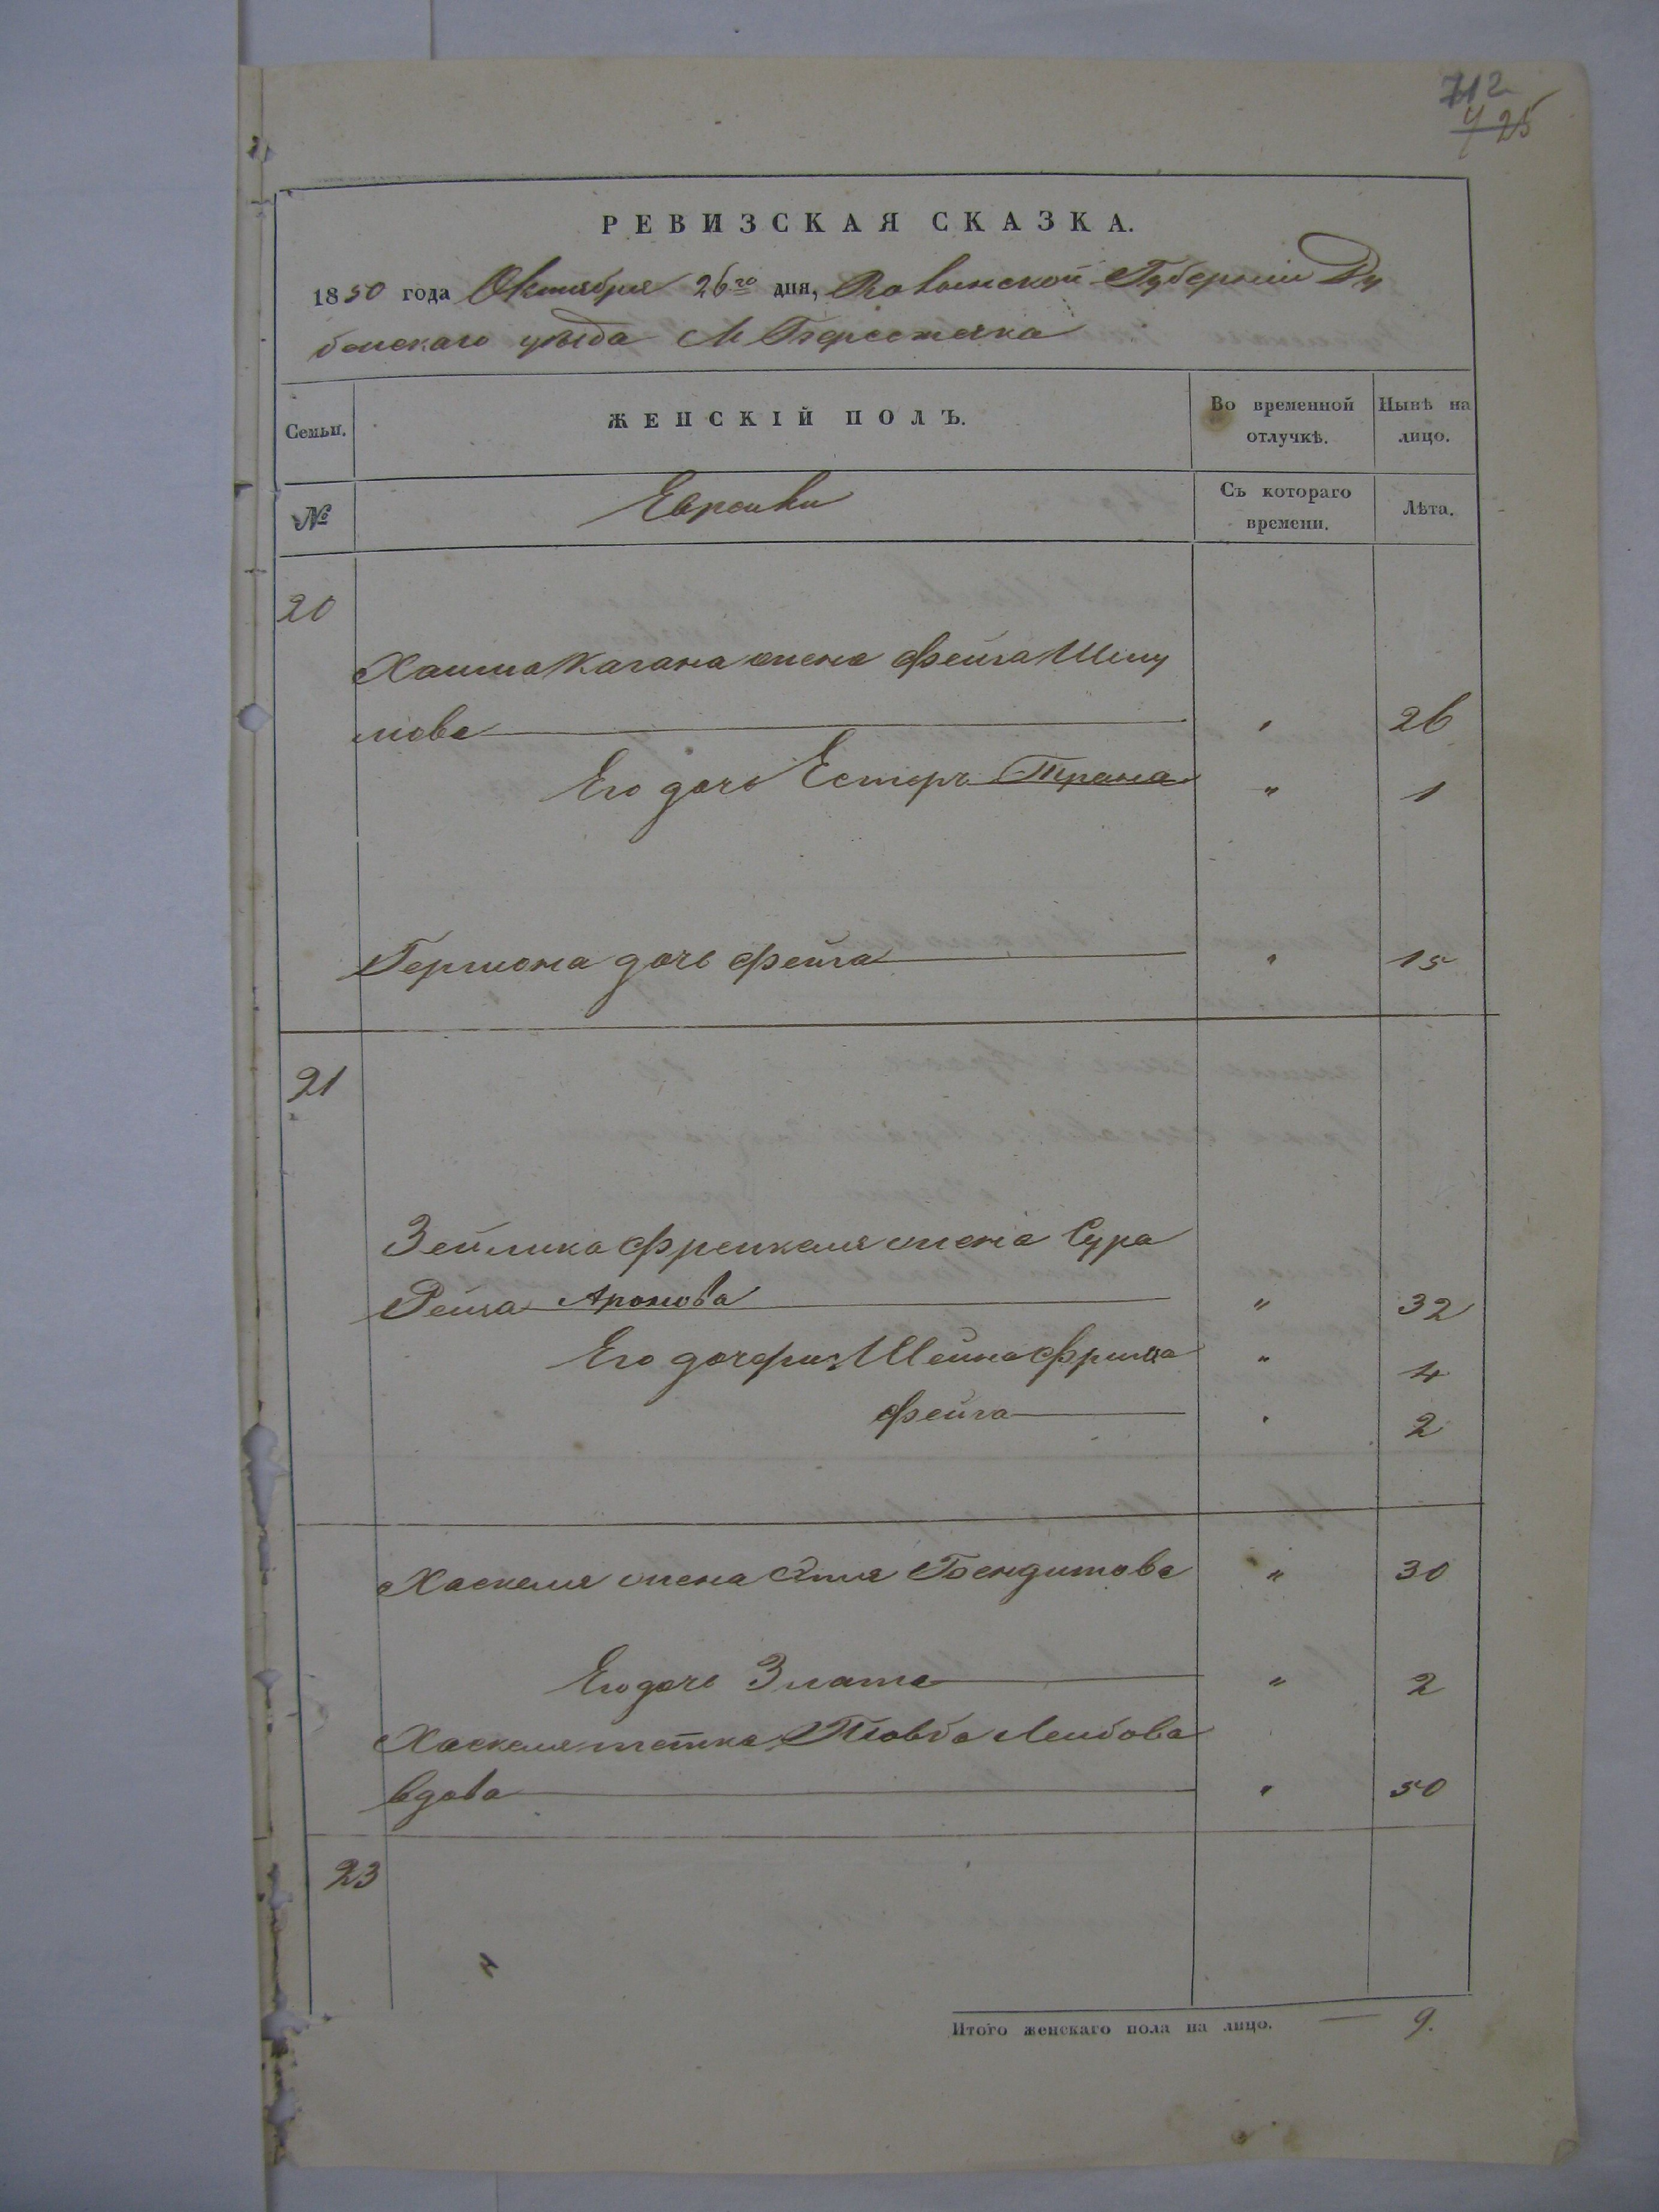 712
725
РЕВИЗСКАЯ СКАЗКА.
1850 года Октября 26го дня, Волынской Губернии Ду
бенскаго уѣзда М Берестечка
Семьи.
ЖЕНСКІЙ ПОЛЪ.
Во временной отлучкѣ.
Нынѣ на лицо.
№
Еврейки
Съ котораго времени.
Лѣта.
20
Хаима Кагана жена Фейга Шму
лова " 26
Его дочь Естеръ Трана " 1
Гершона дочь Фейга " 15
21
Зейлика Френкеля жена Сура
Рейза Аронова " 32
Его дочери: Шейна Фримa " 4
Фейга " 2
Хаскеля жена Этля Бендитова " 30
Его дочь Злата " 2
Хаскеля тетка Товба Лейбова
вдова " 50
23
Итого женскаго пола на лицо. — 9.